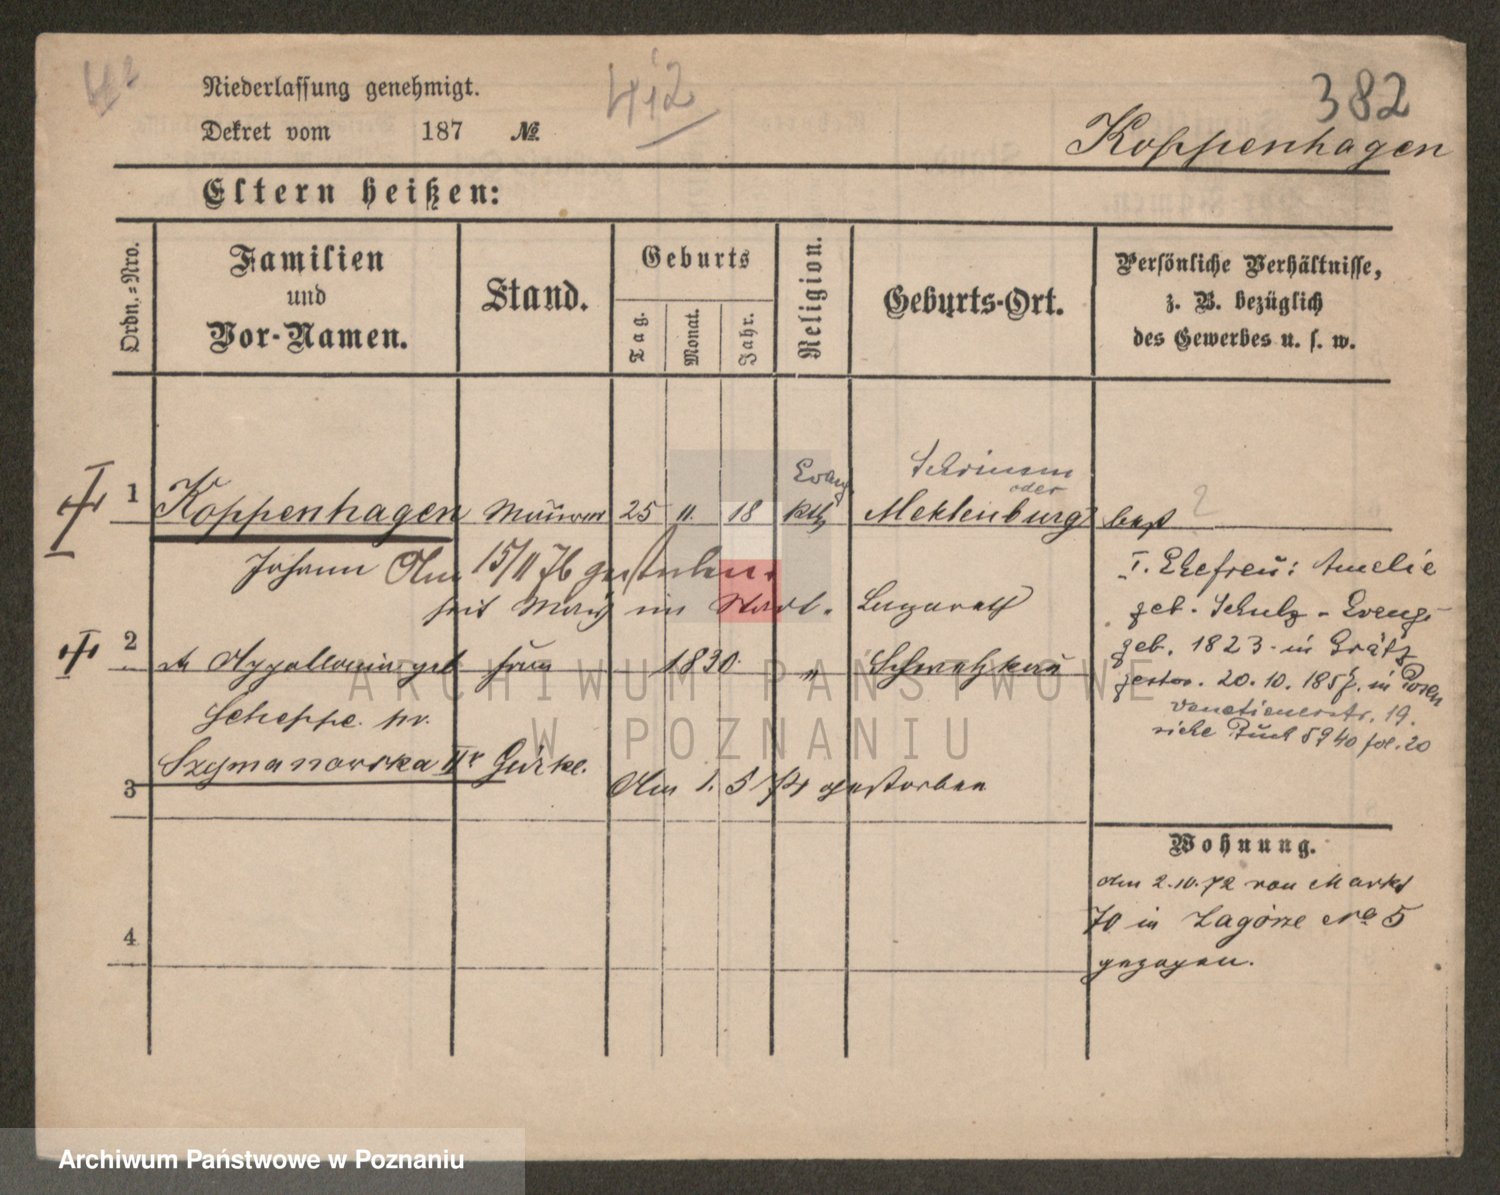 42
Niederlassung genehmigt.
412
382
Dekret vom 187 №
Koppenhagen
Eltern heißen:
Ordn.-Nro.
Familien und Vor-Namen.
Stand.
Geburts
Tag.
Monat.
Jahr.
Religion.
Geburts-Ort.
Persönliche Verhältnisse, z. B. bezüglich des Gewerbes u. s. w.
1 Koppenhagen Maurer 25 11. 18 Evang kth Schrimm oder Meklenburg
Johann Am 15/11 76 gestorben.
seit März im Stadt. Lazareth
I. Ehefrau: Amelie
geb. Schulz - Evang.
geb. 1823 in Grätz
gestor. 20. 10. 1857. in Posen
Venetienerstr. 19.
siehe Buch 5940 fol. 20
2 Appollonia geb Frau 1830. " Schwetzkau
Scheppe. pr.
Szymanowska IIr Gürke.
3 Am 1. 5 74 gestorben
Wohnung.
den 2.10.72 von Markt
70 in Zagórze No 5
gezogen.
4
ARCHIWUM PAŃSTWOWE
W POZNANIU
Archiwum Państwowe w Poznaniu